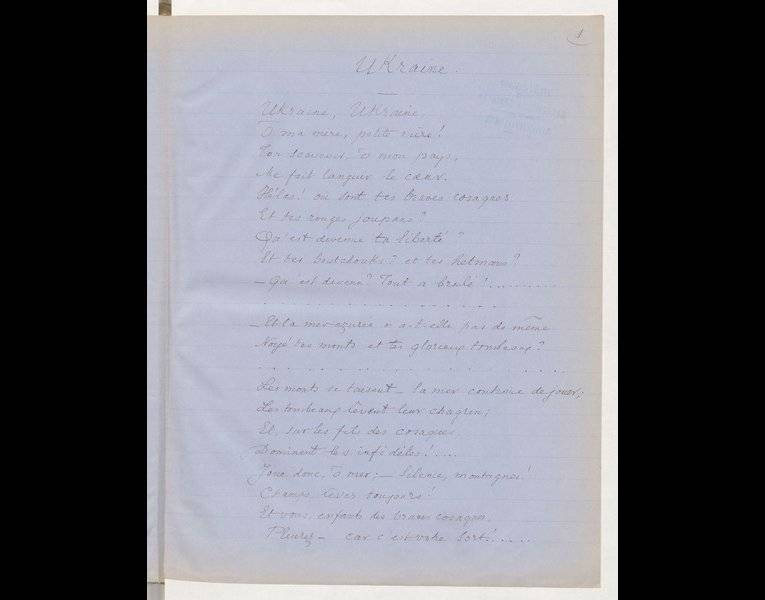 1
Ukraine.
Ukraine, Ukraine,
O ma mère, petite mère!
Ton souvenir, ô mon pays,
Me fait languir le cœur.
Hélas! où sont tes braves cosaques
Et tes rouges joupans?
Qu'est devenue ta liberté?
Et tes bountchouks? et tes hetmans?
— Qu'est devenu? Tout a brulé!........
— Et la mer azurée n'a-t-elle pas de même
Noyé tes monts et tes glorieux tombeaux?
Les monts se taisent — la mer continue de jouer;
Les tombeaux rêvent leur chagrin;
Et, sur les fils des cosaques
Dominent les infidèles!....
Joue donc, ô mer; — silence, montagnes!
Champs, rêvez toujours!
Et vous, enfants des braves cosaques,
Pleurez — car c'est votre sort!.....